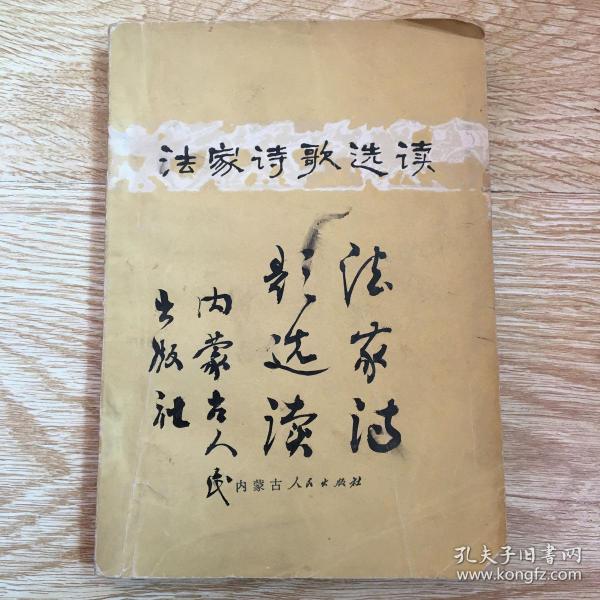 法家诗歌选读
法家诗
歌选读
内蒙古人民
出版社
内蒙古人民出版社
孔夫子旧书网
www.kongfz.com